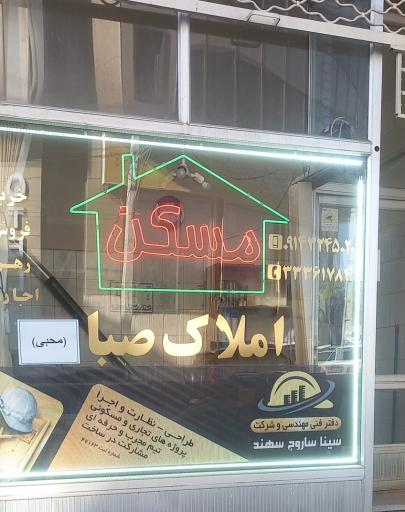 مسکن
خرید
فروش
رهن
اجاره
۳۳۳۶۱۷۸۴
املاک صبا
(محبی)
طراحی - نظارت و اجرا
پروژه های تجاری و مسکونی
تیم مجرب و حرفه ای
مشارکت در ساخت
دفتر فنی مهندسی و شرکت
سینا ساروج سهند